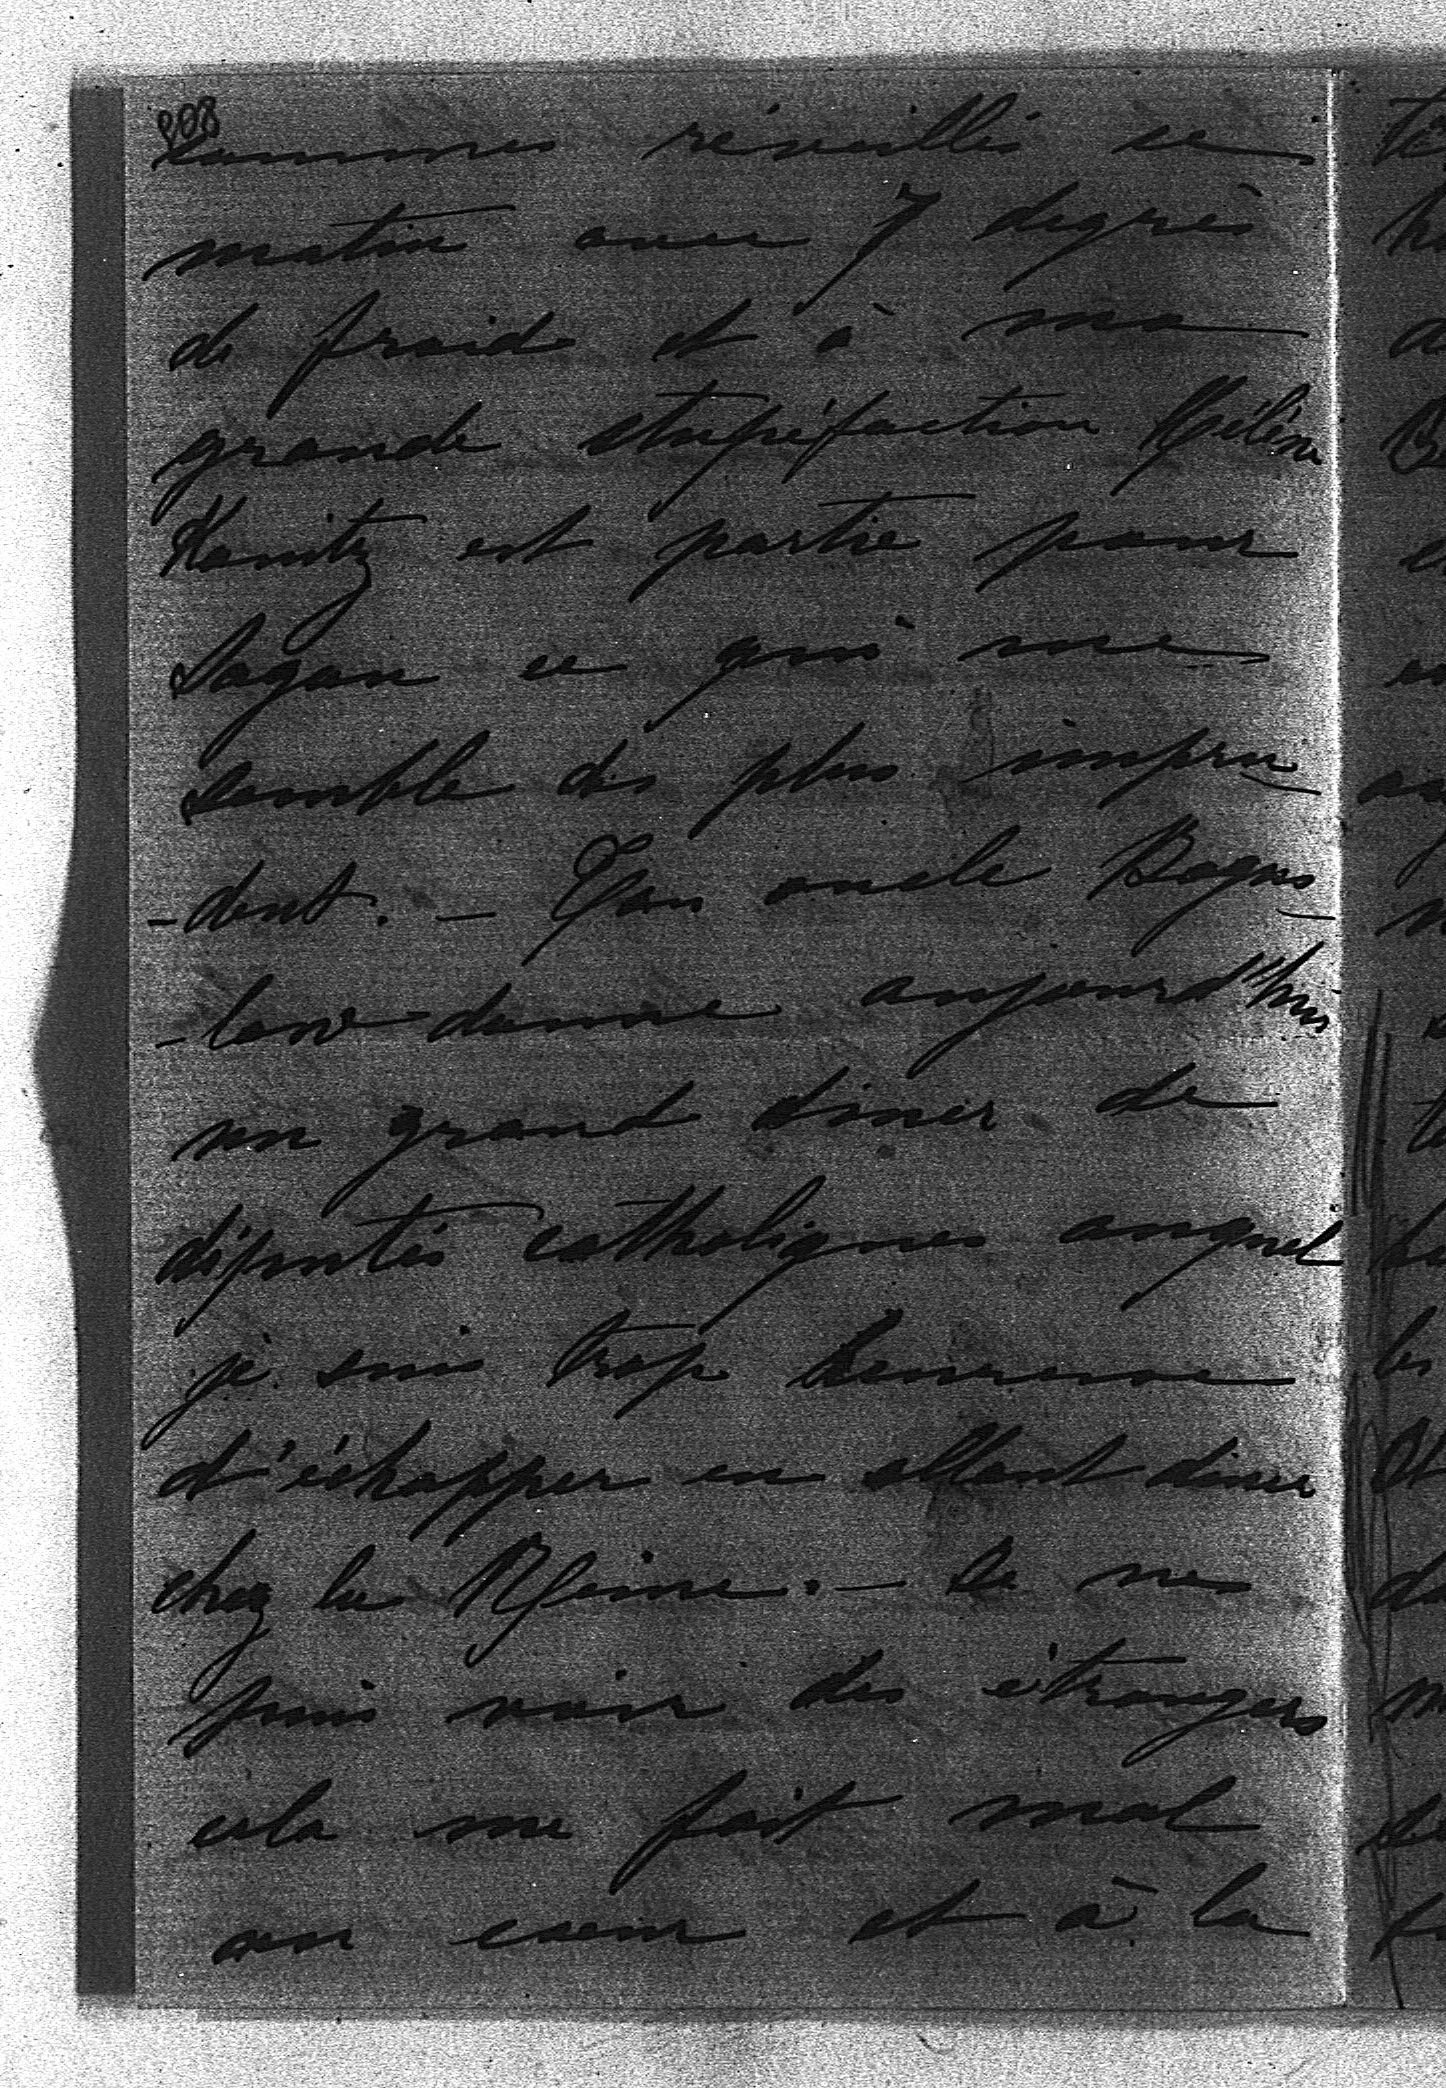 208
sommes réveillés ce
matin avec 7 degrès
de froid et à ma
grande stupéfaction Hélène
Kanitz est partie pour
Sagan ce qui me
semble des plus impru-
-dent. – Ton oncle Bogus-
-law donne aujourd'hui
un grand diner de
députés catholiques auquel
je suis trop heureuse
d'échapper en allant diner
chez la Reine. – Je ne
puis voir des étrangers
cela me fait mal
au coeur et à la